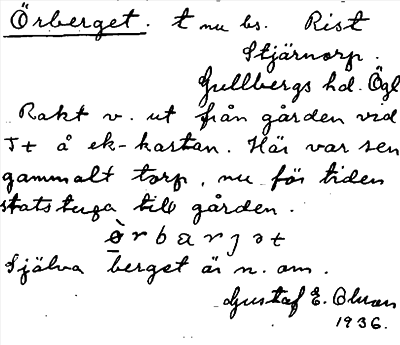 Örberget. t nu bs. Rist
Stjärnorp.
Gullbergs hd. Ögl
Rakt v. ut från gården vid
J+ å ek-kartan. Här var sen
gammalt torp, nu för tiden
statstuga till gården.
ö̀rbarjət
Själva berget är n. om.
Gustaf E. Olsson
1936.